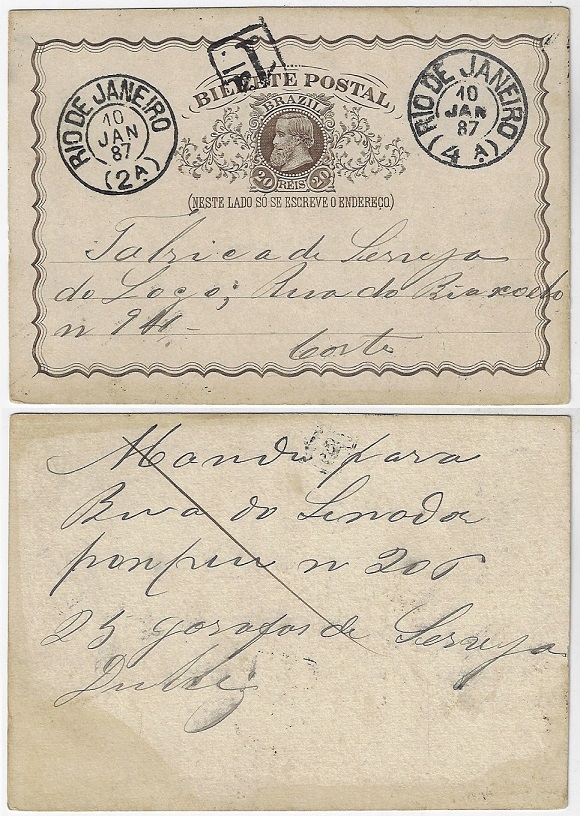 BILHETE POSTAL
RIO DE JANEIRO
10
JAN
87
(2A)
BRAZIL
20 REIS 20
RIO DE JANEIRO
10
JAN
87
(4A)
(NESTE LADO SÓ SE ESCREVE O ENDEREÇO)
Fabrica de Serveja
do Logo; Rua do
n
Corte
Mandi para
Rua do Senador
ponpeu n 206
25 garafas de Serveja